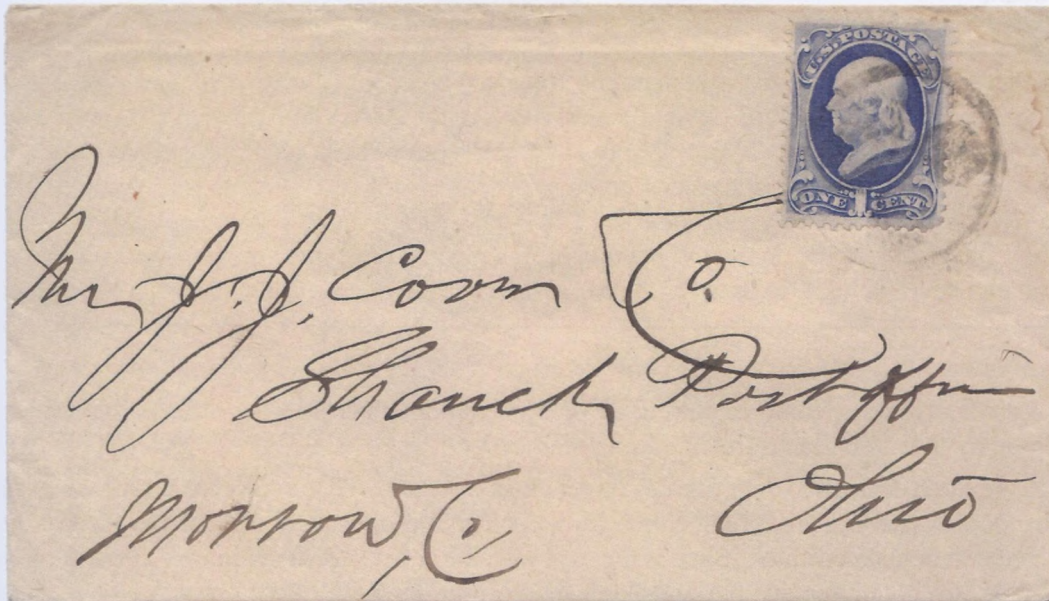 U.S. POSTAGE
ONE 1 CENT
J. J. Coom Co.
Shauck Post Offic
Morrow, Co,
Ohio